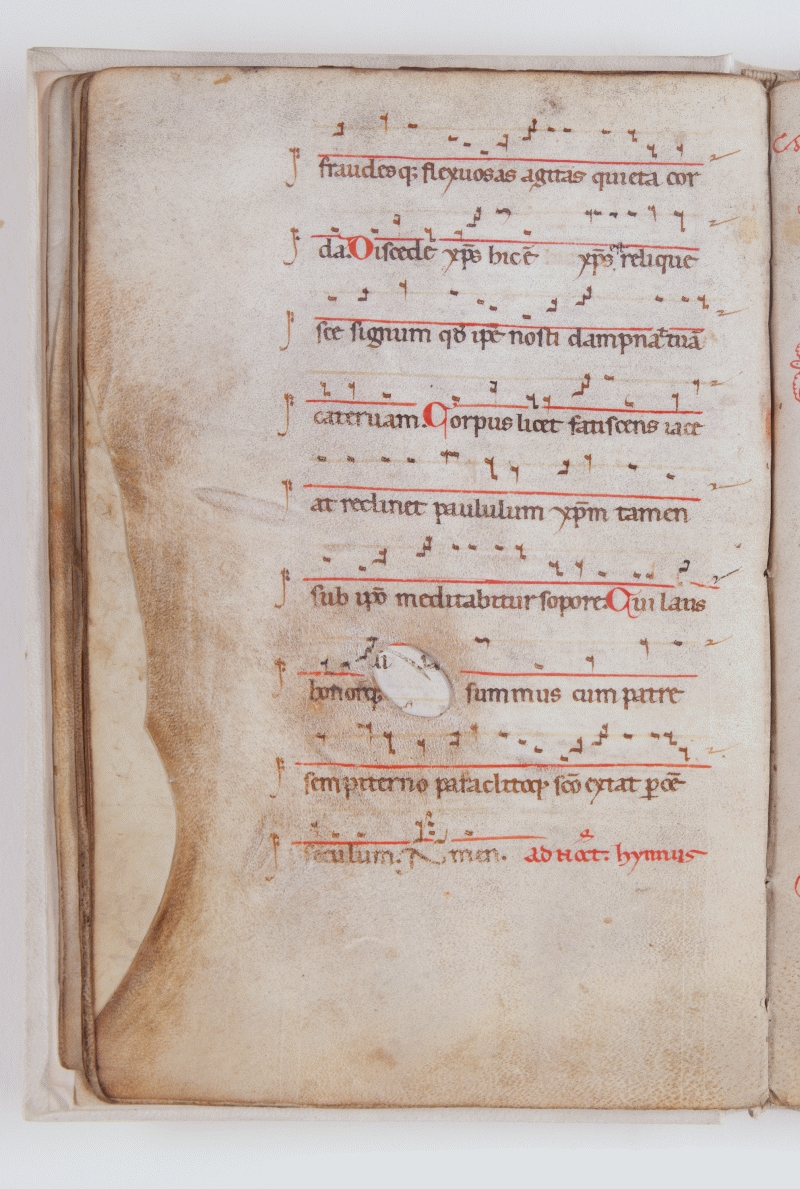 fraudesq; flexuosas agitas quieta cor
da. Discede xp̄s hic ē xp̄s est relique
sce signum qđ ipē nosti dampnat tuā
cateruam. Corpus licet fatiscens iace
at reclinet paululum xp̄m tamen
sub ipō meditabitur sopore. Qui laus
bonorq; summus cum patre
sempiterno paraclitoq; scō extat p cē
seculum. Amen. ad noct. hymnus